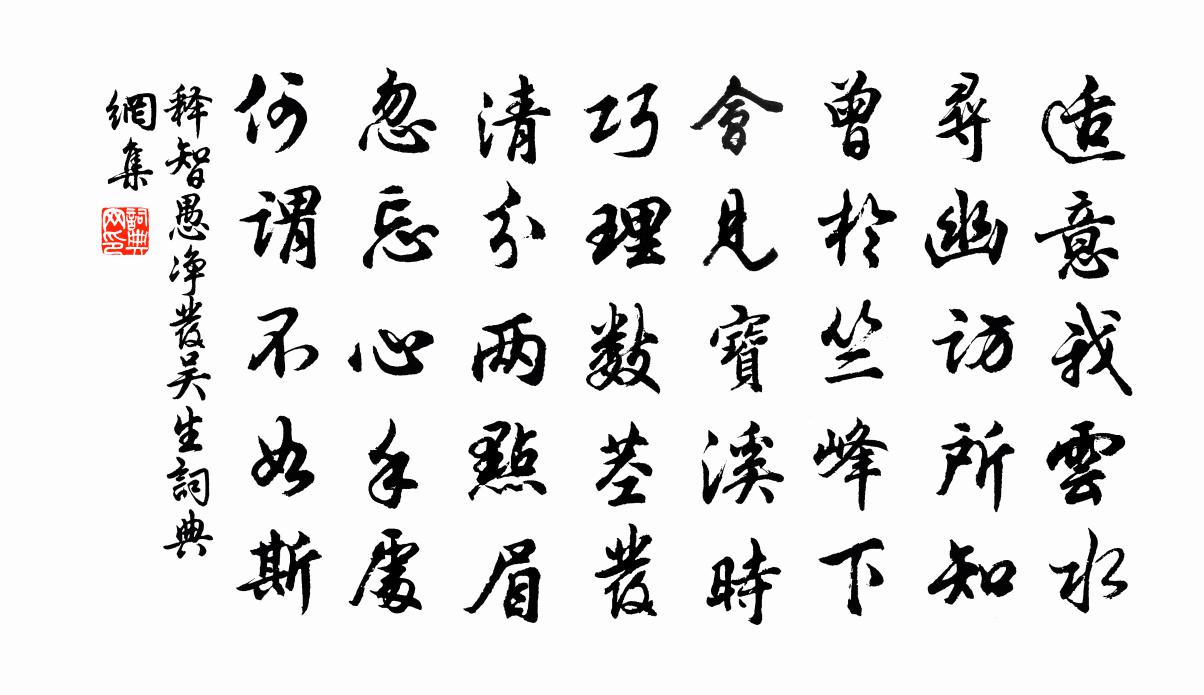 适意我雲水
尋幽訪所知
曾於竺峰下
會見寶溪時
巧理數茎發
清分两點眉
忽忘心手處
何謂不如斯
释智愚净發吴生詞典
網集
詞典
网印